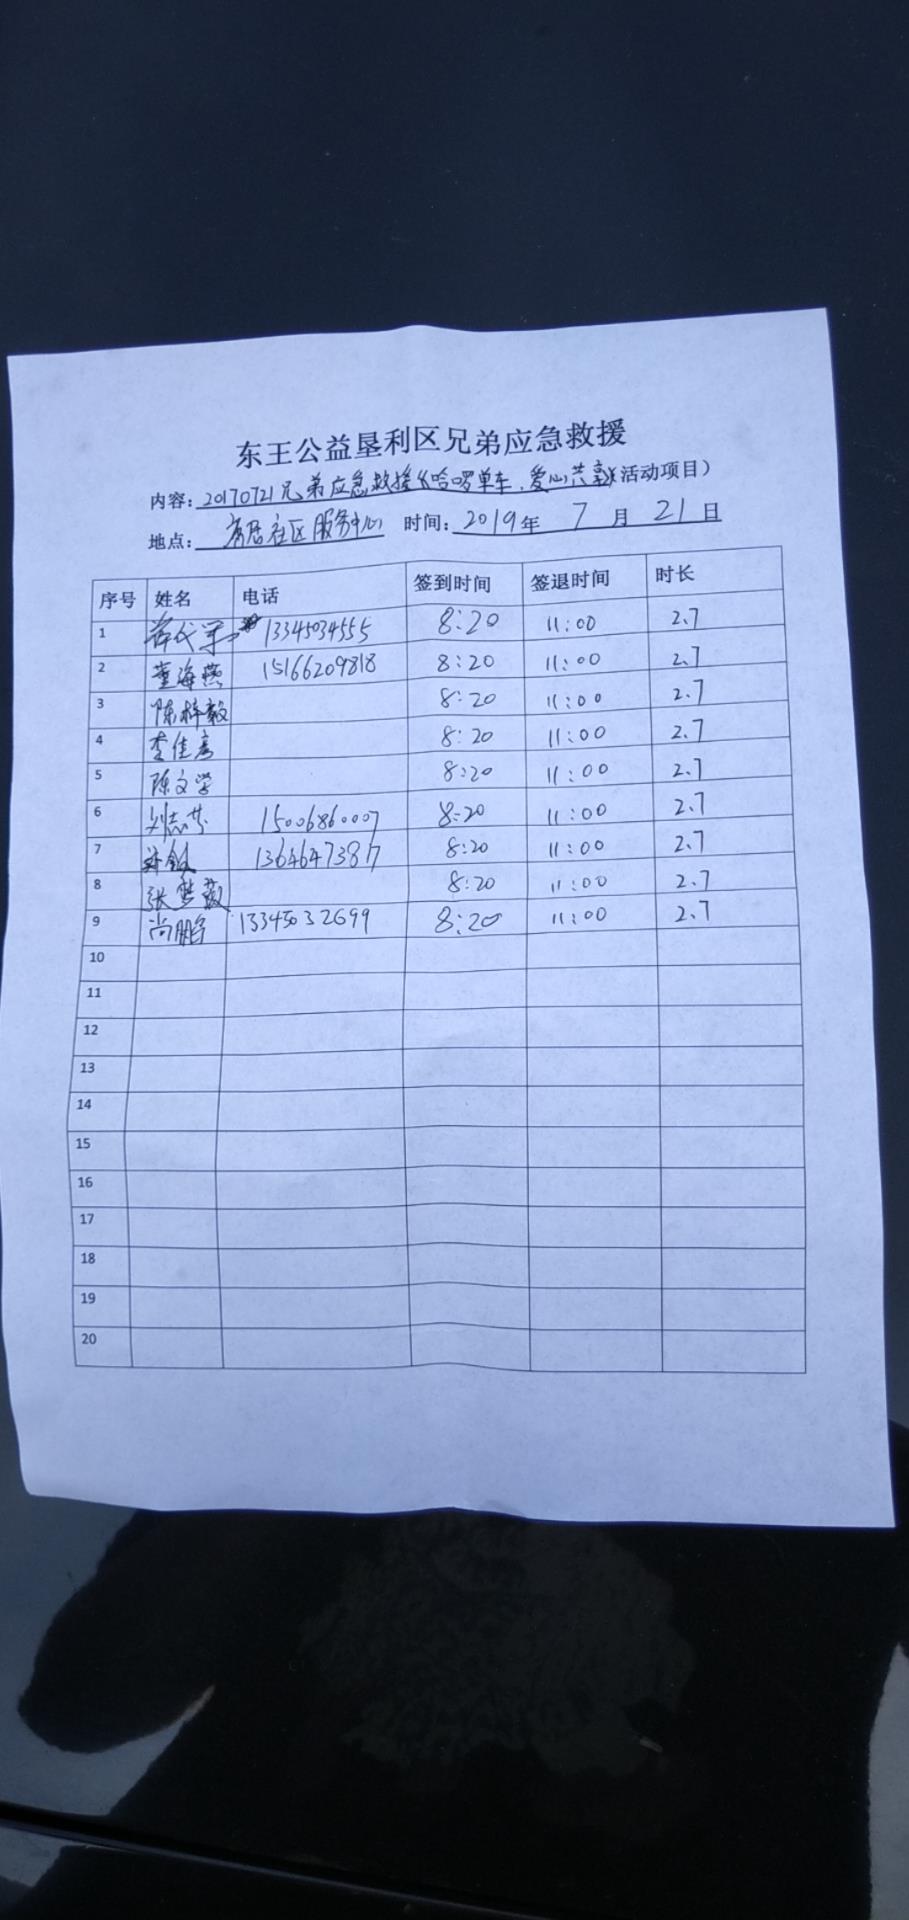 东王公益垦利区兄弟应急救援
内容：20170721兄弟应急救援《哈啰单车，爱心共享》（活动项目）
地点： 社区服务中心 时间：2019年 7 月 21 日
序号 姓名 电话 签到时间 签退时间 时长
1 13345034555 8:20 11:00 2.7
2 董海燕 15166209818 8:20 11:00 2.7
3 陈梓毅 8:20 11:00 2.7
4 李佳 8:20 11:00 2.7
5 陈文学 8:20 11:00 2.7
6 刘志芬 15006860007 8:20 11:00 2.7
7 13646473817 8:20 11:00 2.7
8 张梦薇 8:20 11:00 2.7
9 尚鹏 13345032699 8:20 11:00 2.7
10
11
12
13
14
15
16
17
18
19
20